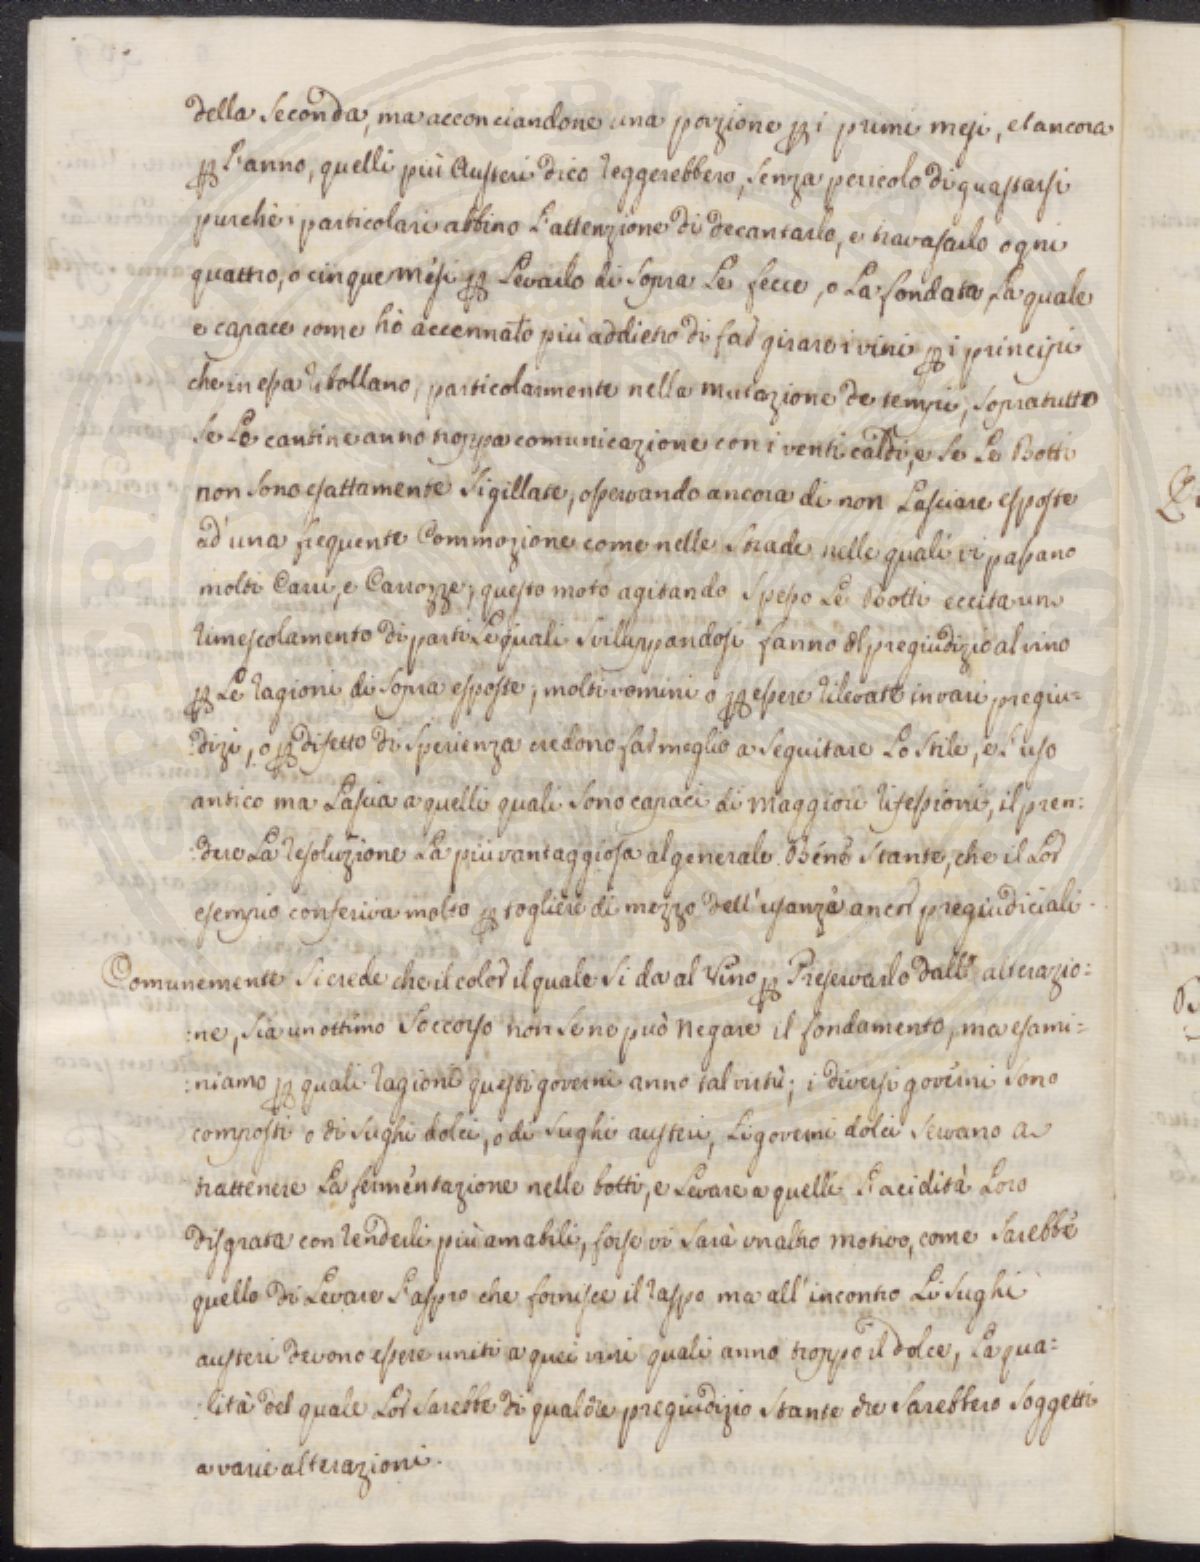 della Seconda, ma acconciandone una porzione ꝑ i primi mesi, et ancora
ꝑ L'anno, quelli più Austeri dico reggerebbero, senza pericolo di guastarsi
purchè i particolari abbino L'attenzione di decantarlo, e travasarlo ogni
quattro, o cinque mesi ꝑ Levarlo di sopra Le fecce, o La fondata, La quale
e capace come hò accennato più addietro di far girare i vini ꝑ i principi
che in essa ribollano, particolarmente nella mutazione de tempi, sopratutto
se Le cantine anno troppa comunicazione con i venti caldi, e se Le Botti
non sono esattamente sigillate, osservando ancora di non Lasciare esposte
ad una frequente Commozione come nelle strade nelle quali vi passano
molti Carri, e Carrozze; questo moto agitando spesso Le Botti eccita un
rimescolamento di parti Le quali sviluppandosi fanno del pregiudizio al vino
ꝑ Le ragioni di sopra esposte; molti uomini o ꝑ essere rilevati in vari pregiu=
:dizi, o ꝑ difetto di sperienza credono far meglio a seguitare Lo stile, e L'uso
antico ma Lascia a quelli quali sono capaci di maggiori riflessioni, il pren:
:dere La resoluzione La più vantaggiosa al generale Bene stante, che il Lor
esempio conferiva molto ꝑ togliere di mezzo dell'usanze ancor pregiudiciali.
Comunemente si crede che il color il quale si da al Vino ꝑ Preservarlo dall' alterazio:
:ne, sia un ottimo soccorso non se ne può negare il fondamento, ma esami=
:niamo ꝑ quali ragioni questi governi anno tal virtù; i diversi governi sono
composti o di sughi dolci, o di sughi austeri, Li governi dolci servano a
trattenere La fermentazione nelle botti, e Levare a quelli L'acidità Loro
disgrata con renderli più amabili, forse vi sarà un altro motivo, come sarebbe
quello di Levare L'aspro che fornisce il raspo ma all'incontro Li sughi
austeri devono essere uniti a quei vini quali anno troppo il dolce, La qua=
:lità del quale Lor sarebbe di qualche pregiudizio stante che sarebbero soggetti
a varie alterazioni.